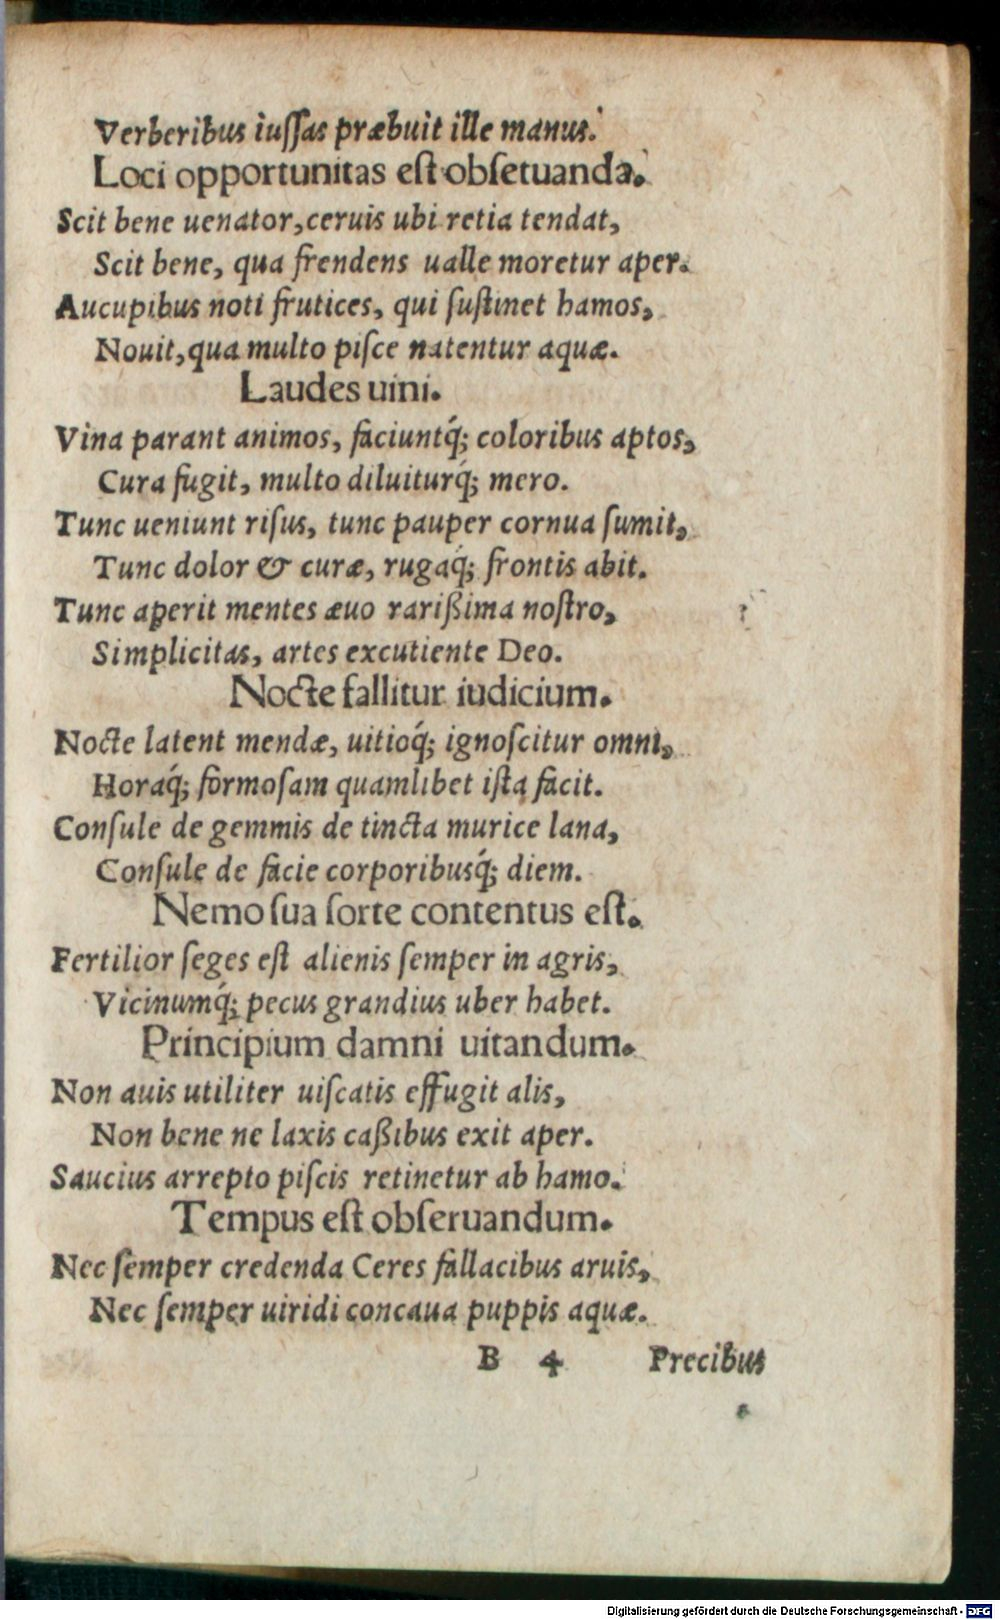 Verberibus iuſſas præbuit ille manus.
Loci opportunitas eſt obſetuanda.
Scit bene uenator, ceruis ubi retia tendat,
Scit bene, qua frendens ualle moretur aper.
Aucupibus noti frutices, qui ſuſtinet hamos,
Nouit, qua multo piſce natentur aquæ.
Laudes uini.
Vina parant animos, faciuntq́; coloribus aptos,
Cura fugit, multo diluiturq́; mero.
Tunc ueniunt riſus, tunc pauper cornua ſumit,
Tunc dolor & curæ, rugaq́; frontis abit.
Tunc aperit mentes æuo rarißima noſtro,
Simplicitas, artes excutiente Deo.
Nocte fallitur iudicium.
Nocte latent mendæ, uitioq́; ignoſcitur omni,
Horaq́; formoſam quamlibet iſta facit.
Conſule de gemmis de tincta murice lana,
Conſule de facie corporibusq́; diem.
Nemo ſua ſorte contentus eſt.
Fertilior ſeges eſt alienis ſemper in agris,
Vicinumq́; pecus grandius uber habet.
Principium damni uitandum.
Non auis utiliter uiſcatis effugit alis,
Non bene ne laxis caßibus exit aper.
Saucius arrepto piſcis retinetur ab hamo.
Tempus eſt obſeruandum.
Nec ſemper credenda Ceres fallacibus aruis,
Nec ſemper uiridi concaua puppis aquæ.
B 4 Precibus
Digitalisierung gefördert durch die Deutsche Forschungsgemeinschaft - DFG